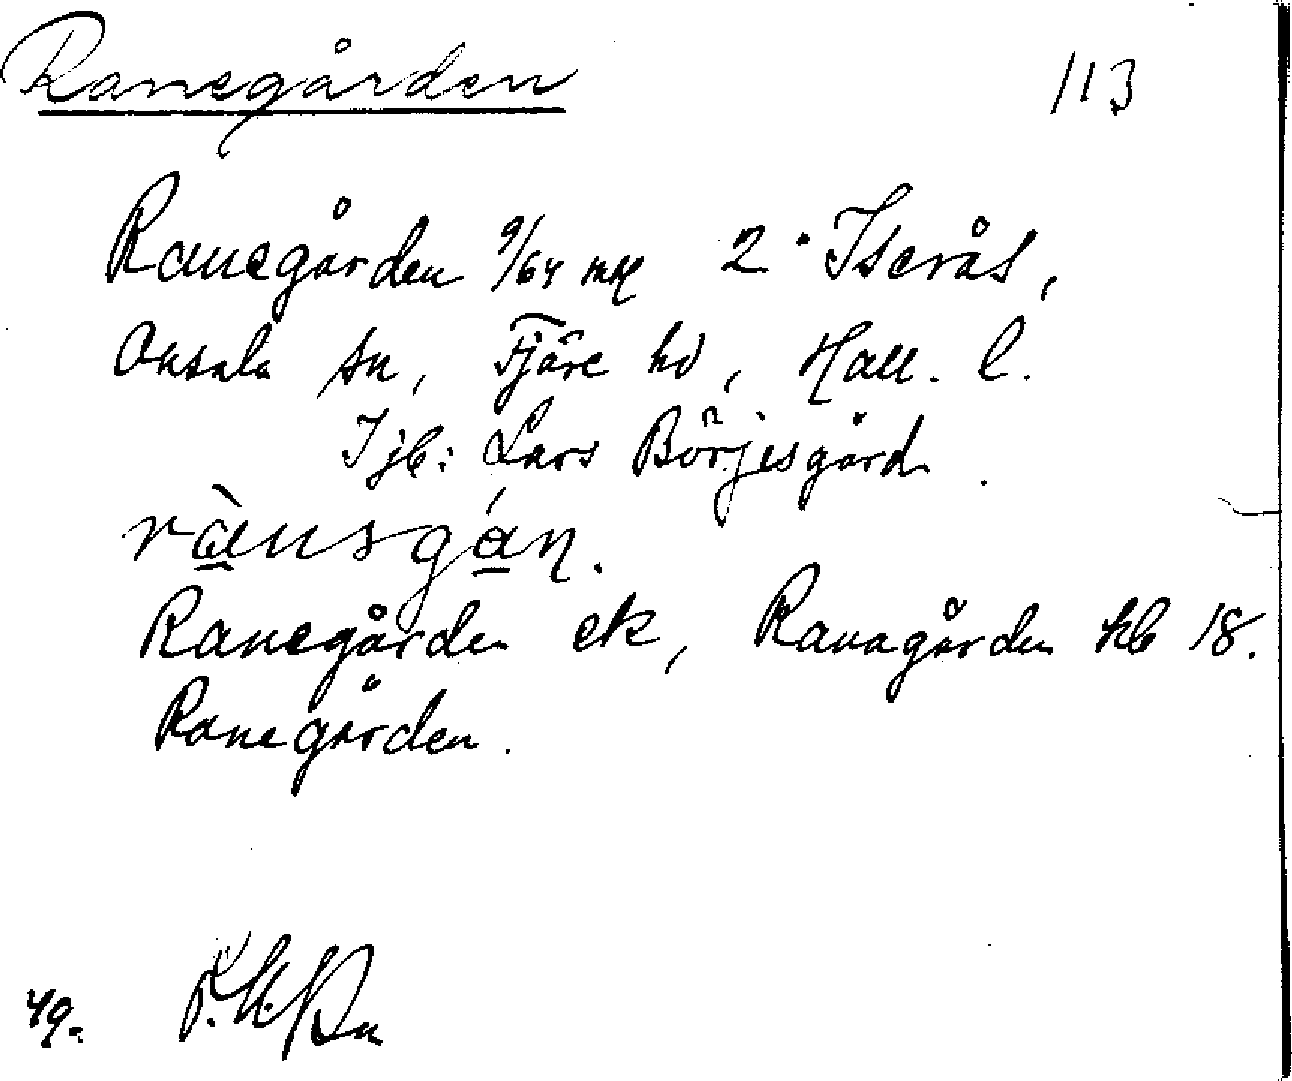 Ranegården 113
Ranegården 9/64 mtl 2 Iserås,
Onsala sn, Fjäre hd, Hall. l.
I jb: Lars Börjesgård.
rànsgán.
Ranegården ek, Ranagården kb 18.
Ranegården.
49.